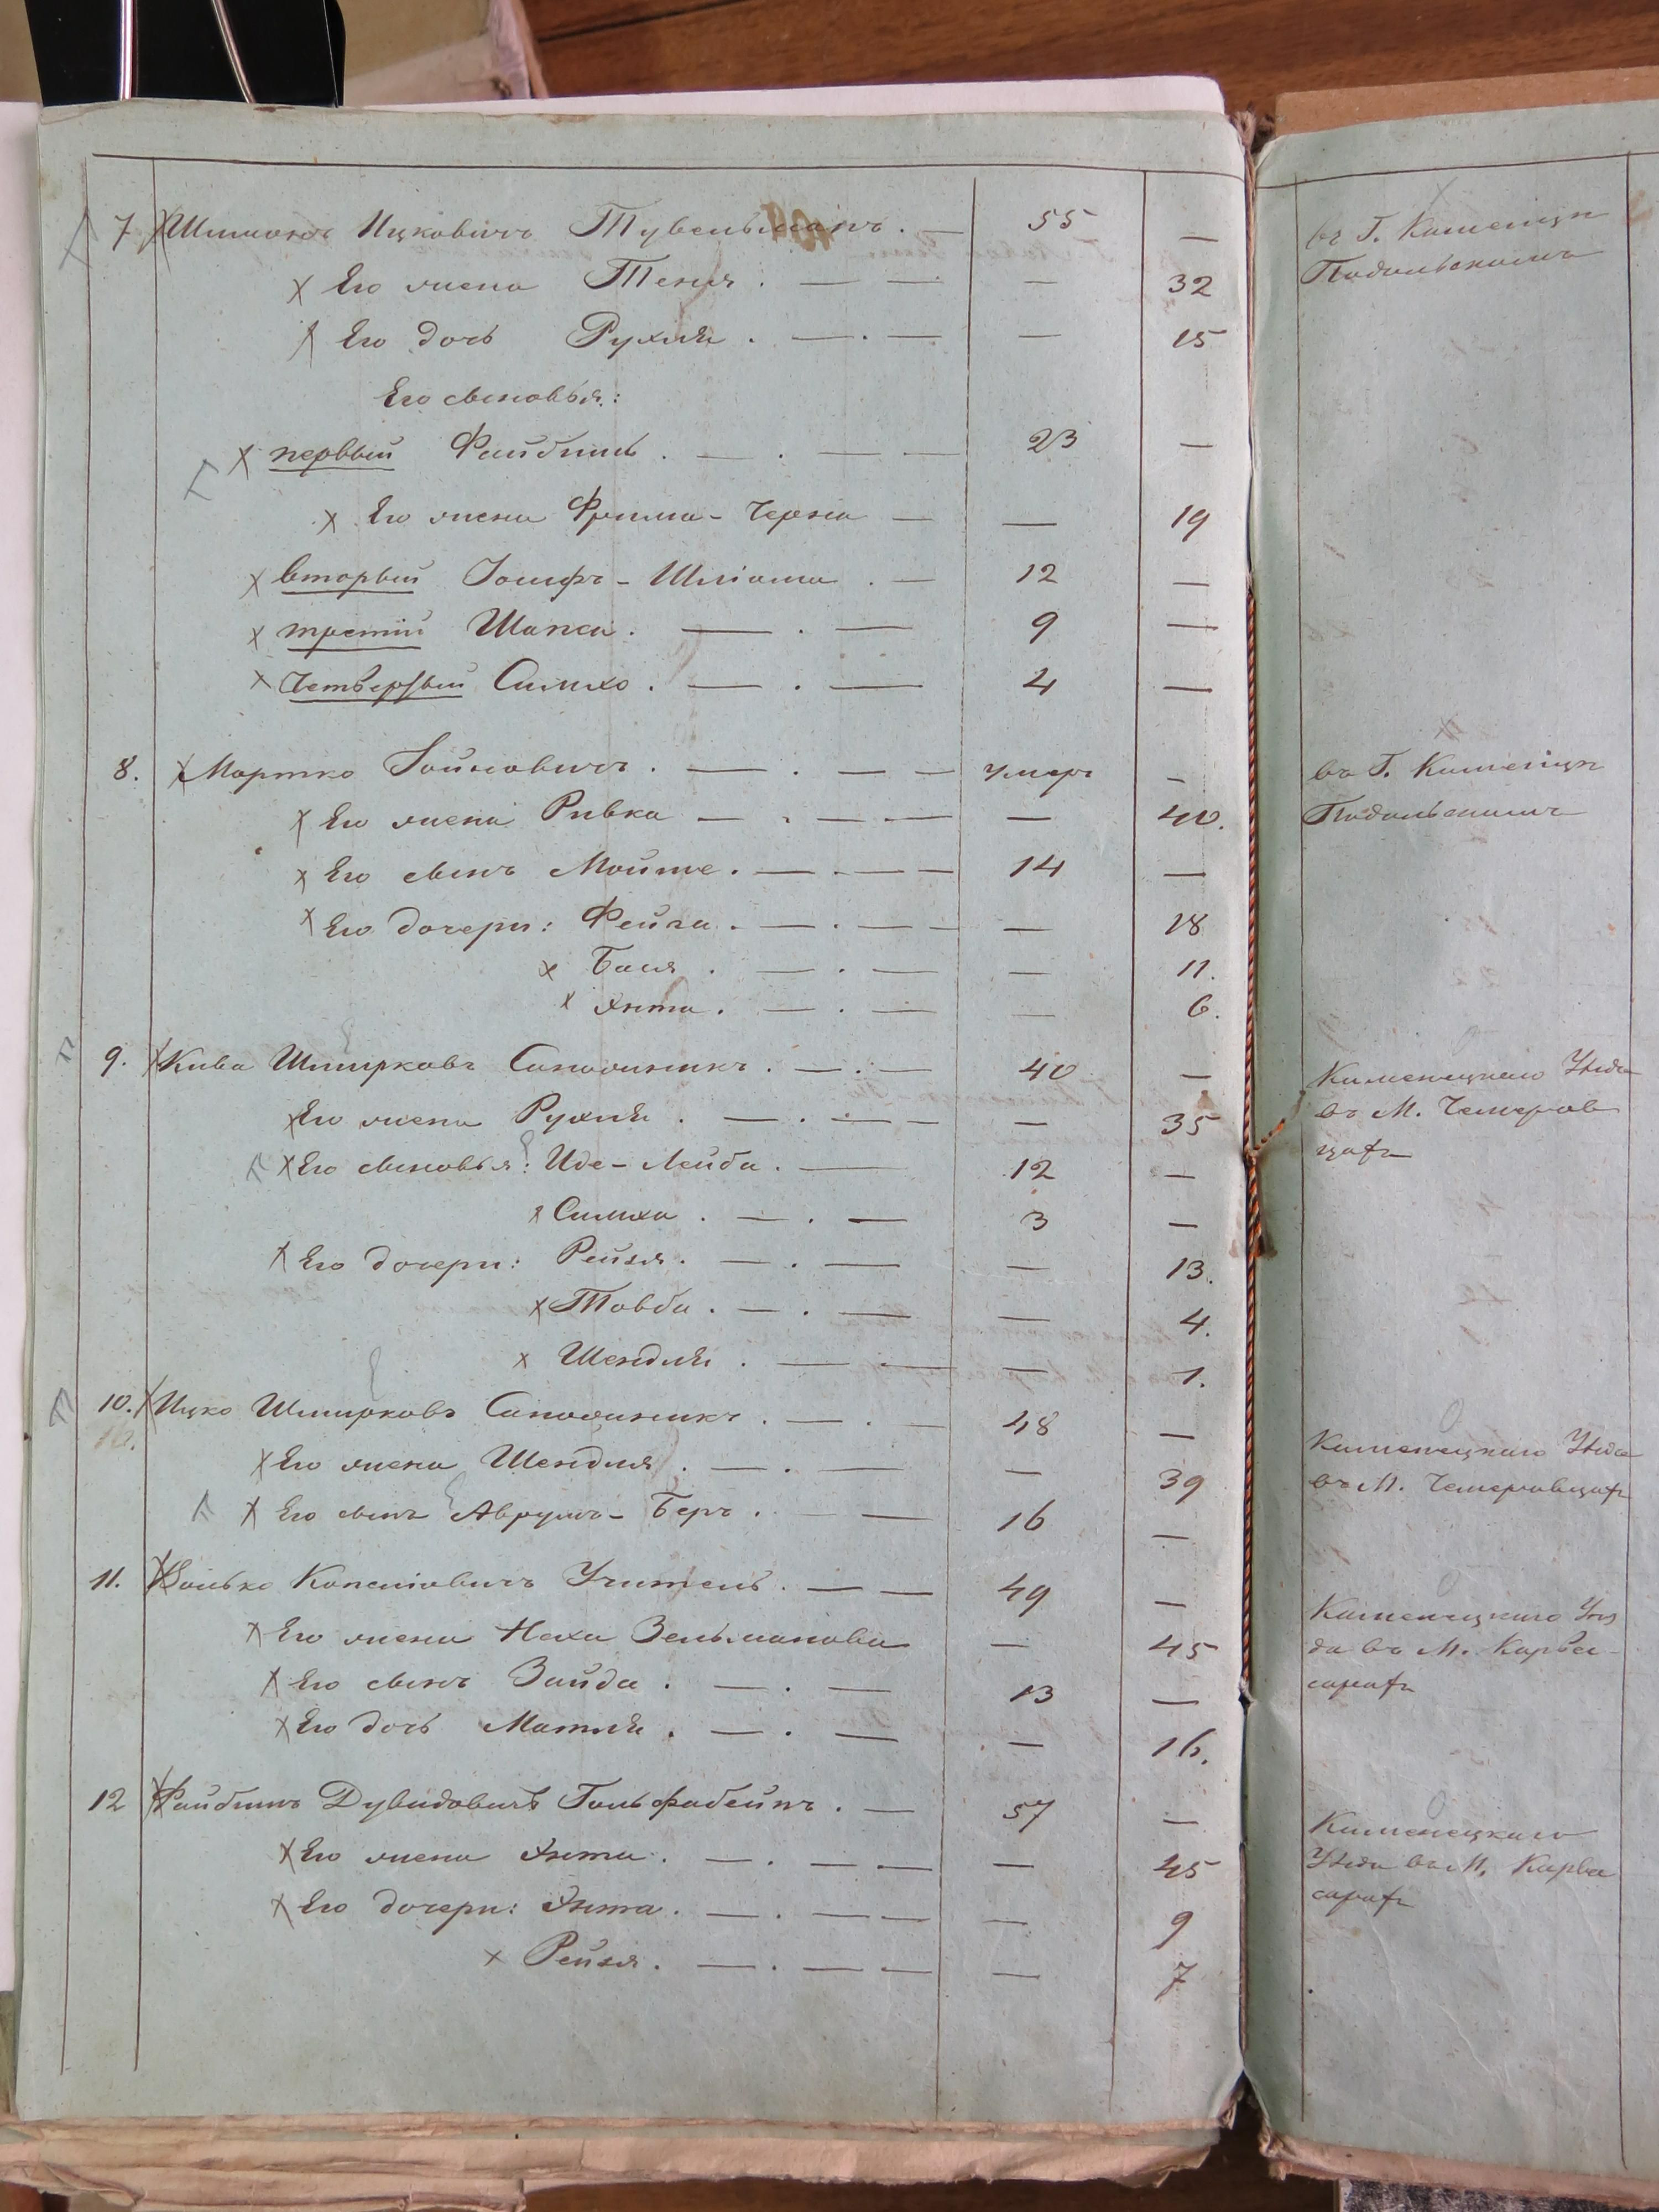 7 Шимонъ Ицковичъ Тувельманъ . — 55 —
въ Г. Каменцѣ
Подольскомъ
Его жена Теня . — — — 32
Его дочь Рухля . — . — — 15
Его сыновья:
первый Файбишъ . — . — — 23 —
Его жена Фрима-Черна — — 19
вторый Іосифъ-Шліома . — 12 —
третій Шапса . — . — 9 —
четвертый Симхо . — . — 4 —
8. Мортко Іойновичъ . — . — — умеръ —
въ Г. Каменцѣ
Подольскимъ
Его жена Ривка — . — . — — 40.
Его сынъ Мойше . — . — — 14 —
Его дочери: Фейга . — . — — — 18
Бася . — . — — 11.
Янта . — . — — 6.
9. Кива Шмирковъ Сапожникъ . — . — 40 —
Каменецкаго Уѣзда
въ М. Чемеров
цахъ
Его жена Рухля . — . — — — 35
Его сыновья: Иде-Лейба . — 12 —
Симха . — . — 3 —
Его дочери: Рейзя . — . — — 13.
Товба . — . — — 4.
Шендля . — . — — 1.
10. Ицко Шмирковъ Сапожникъ . — . — 48 —
Каменецкаго Уѣзда
въ М. Чемеровцахъ
Его жена Шендля . — . — — 39
Его сынъ Аврумъ-Беръ . — 16 —
11. Волько Копелiовичъ Учитель . — — 49 —
Каменецкаго Уѣз
да въ М. Карва-
сарахъ
Его жена Неха Зельманова — 45
Его сынъ Зайда . — . — 13 —
Его дочь Матля . — . — — 16.
12 Файбишъ Дувидовичъ Гольфабейнъ . — 57 —
Каменецкаго
Уѣзда въ М. Карва
сарахъ
Его жена Янта . — . — — — 45
Его дочери: Янта . — . — — — 9
Рейзя . — . — — — 7